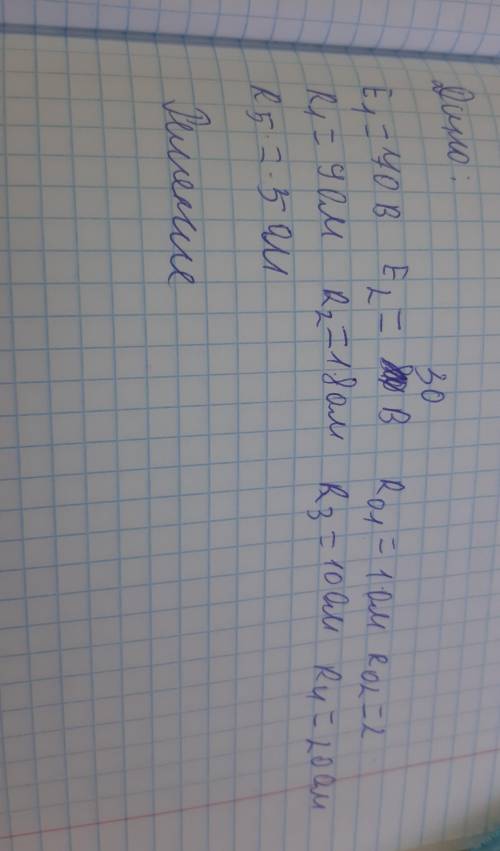 Дано:
E1 = 40 В E2 = 30 В R01 = 1 Ом R02 = 2
R1 = 9 Ом R2 = 18 Ом R3 = 10 Ом R4 = 20 Ом
R5 = 5 Ом
Решение